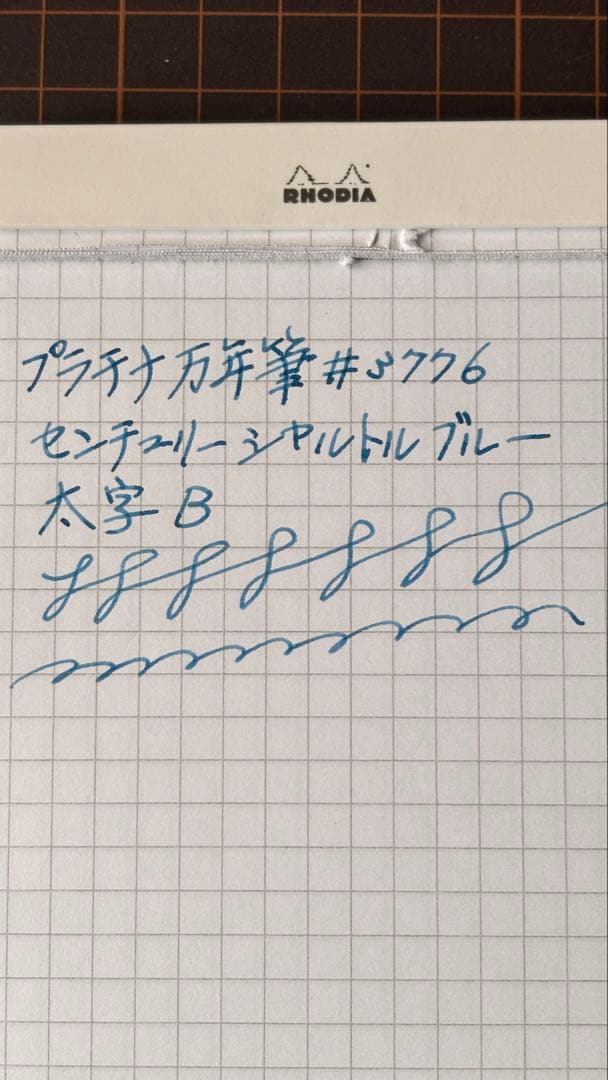 RHODIA
プラチナ万年筆 #3776
センチュリー シャルトルブルー
太字 B